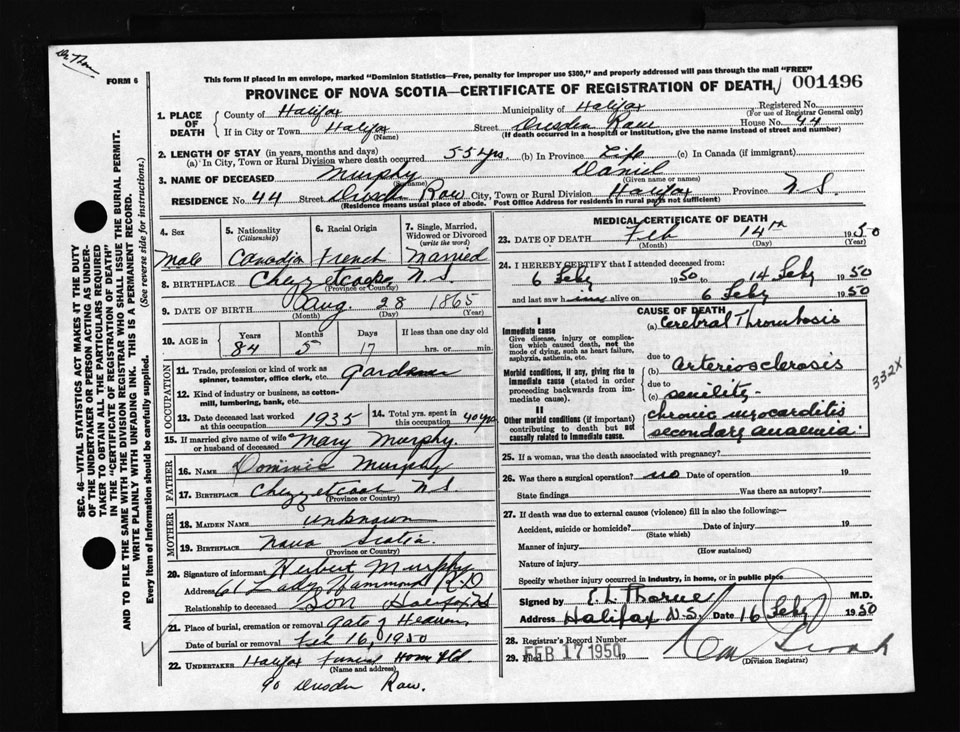 Dr. Thorne
FORM 6
This form if placed in an envelope, marked "Dominion Statistics—Free, penalty for improper use $300," and properly addressed will pass through the mail "FREE"
PROVINCE OF NOVA SCOTIA—CERTIFICATE OF REGISTRATION OF DEATH 001496
SEC. 46—VITAL STATISTICS ACT MAKES IT THE DUTY
OF THE UNDERTAKER OR PERSON ACTING AS UNDER-
TAKER TO OBTAIN ALL THE PARTICULARS REQUIRED
IN THE "CERTIFICATE OF REGISTRATION OF DEATH"
AND TO FILE THE SAME WITH THE DIVISION REGISTRAR WHO SHALL ISSUE THE BURIAL PERMIT.
WRITE PLAINLY WITH UNFADING INK. THIS IS A PERMANENT RECORD.
Every item of Information should be carefully supplied. (See reverse side for instructions.)
1. PLACE OF DEATH
County of Halifax Municipality of Halifax Registered No.
(For use of Registrar General only)
If in City or Town Halifax Street Dresden Row House No. 44
(Name) (If death occurred in a hospital or institution, give the name instead of street and number)
2. LENGTH OF STAY (in years, months and days)
(a) In City, Town or Rural Division where death occurred 55 yrs. (b) In Province Life (c) In Canada (if immigrant)
3. NAME OF DECEASED Murphy Daniel
(Surname) (Given name or names)
RESIDENCE No. 44 Street Dresden Row City, Town or Rural Division Halifax Province N.S.
(Residence means usual place of abode. Post Office Address for residents in rural parts not sufficient)
4. Sex 5. Nationality (Citizenship) 6. Racial Origin 7. Single, Married, Widowed or Divorced (write the word)
Male Canadian French Married
8. BIRTHPLACE Chezzetcook N.S.
(Province or Country)
9. DATE OF BIRTH Aug. 28 1865
(Month) (Day) (Year)
10. AGE in Years Months Days If less than one day old
84 5 17 hrs. or min.
OCCUPATION
11. Trade, profession or kind of work as spinner, teamster, office clerk, etc. Gardener
12. Kind of industry or business, as cotton-mill, lumbering, bank, etc.
13. Date deceased last worked at this occupation 1935 14. Total yrs. spent in this occupation 40 yrs
15. If married give name of wife or husband of deceased Mary Murphy.
FATHER
16. NAME Dominic Murphy
17. BIRTHPLACE Chezzetcook N.S.
(Province or Country)
MOTHER
18. MAIDEN NAME unknown
19. BIRTHPLACE Nova Scotia.
(Province or Country)
20. Signature of informant Herbert Murphy
Address 61 Lady Hammond Rd
Relationship to deceased Son Halifax NS
21. Place of burial, cremation or removal Gate of Heaven
Date of burial or removal Feb 16, 1950
22. UNDERTAKER Halifax Funeral Home Ltd.
(Name and address)
90 Dresden Row.
MEDICAL CERTIFICATE OF DEATH
23. DATE OF DEATH Feb 14th 1950
(Month) (Day) (Year)
24. I HEREBY CERTIFY that I attended deceased from:
6 Feby 1950 to 14 Feby 1950
and last saw him alive on 6 Feby 1950
CAUSE OF DEATH
I
Immediate cause
Give disease, injury or complication which caused death, not the mode of dying, such as heart failure, asphyxia, asthenia, etc.
(a) Cerebral Thrombosis
due to
Morbid conditions, if any, giving rise to immediate cause (stated in order proceeding backwards from immediate cause).
(b) Arteriosclerosis
due to
(c) senility
332X
II
Other morbid conditions (if important) contributing to death but not causally related to immediate cause.
chronic myocarditis
secondary anaemia.
25. If a woman, was the death associated with pregnancy?
26. Was there a surgical operation? no Date of operation 19
State findings Was there an autopsy?
27. If death was due to external causes (violence) fill in also the following:—
Accident, suicide or homicide? Date of injury 19
(State which)
Manner of injury
(How sustained)
Nature of injury
Specify whether injury occurred in industry, in home, or in public place
Signed by E. L. Thorne M.D.
Address Halifax N.S. Date 16 Feby 1950
28. Registrar's Record Number
29. Filed FEB 17 1950 19
(Division Registrar)